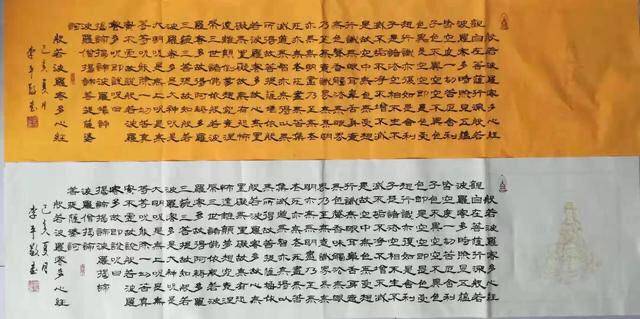 般若波羅蜜多心經
觀自在菩薩行深般若
波羅蜜多時照見五蘊
皆空度一切苦厄舍利
子色不異空空不異色
色即是空空即是色受
想行識亦復如是舍利
子是諸法空相不生不
滅不垢不淨不增不減
是故空中無色無受想
行識無眼耳鼻舌身意
無色聲香味觸法無眼
界乃至無意識界無無
明亦無無明盡乃至無
老死亦無老死盡無苦
集滅道無智亦無得以
無所得故菩提薩埵依
般若波羅蜜多故心無
罣礙無罣礙故無有恐
怖遠離顛倒夢想究竟
涅槃三世諸佛依般若
波羅蜜多故得阿耨多
羅三藐三菩提故知般
若波羅蜜多是大神咒
是大明咒是無上咒是
無等等咒能除一切苦
真實不虛故說般若波羅
蜜多咒即說咒曰
揭諦揭諦波羅揭諦
波羅僧揭諦菩提薩婆
訶
般若波羅蜜多心經
己亥夏月
李平敬書
般若波羅蜜多心經
觀自在菩薩行深般若
波羅蜜多時照見五蘊
皆空度一切苦厄舍利
子色不異空空不異色
色即是空空即是色受
想行識亦復如是舍利
子是諸法空相不生不
滅不垢不淨不增不減
是故空中無色無受想
行識無眼耳鼻舌身意
無色聲香味觸法無眼
界乃至無意識界無無
明亦無無明盡乃至無
老死亦無老死盡無苦
集滅道無智亦無得以
無所得故菩提薩埵依
般若波羅蜜多故心無
罣礙無罣礙故無有恐
怖遠離顛倒夢想究竟
涅槃三世諸佛依般若
波羅蜜多故得阿耨多
羅三藐三菩提故知般
若波羅蜜多是大神咒
是大明咒是無上咒是
無等等咒能除一切苦
真實不虛故說般若波羅
蜜多咒即說咒曰
揭諦揭諦波羅揭諦
波羅僧揭諦
菩提薩婆訶
般若波羅蜜多心經
己亥夏月
李平敬書